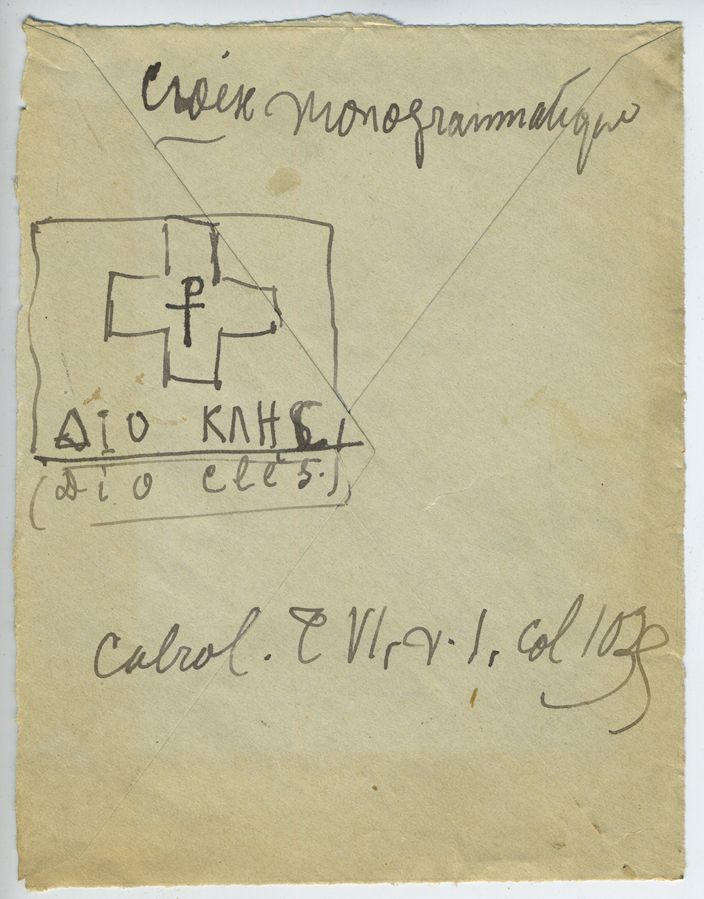 Croix monogrammatique
ΔΙΟ ΚΛΗϹ
(Dio clès.)
Cabrol. T VI, v. 1, col